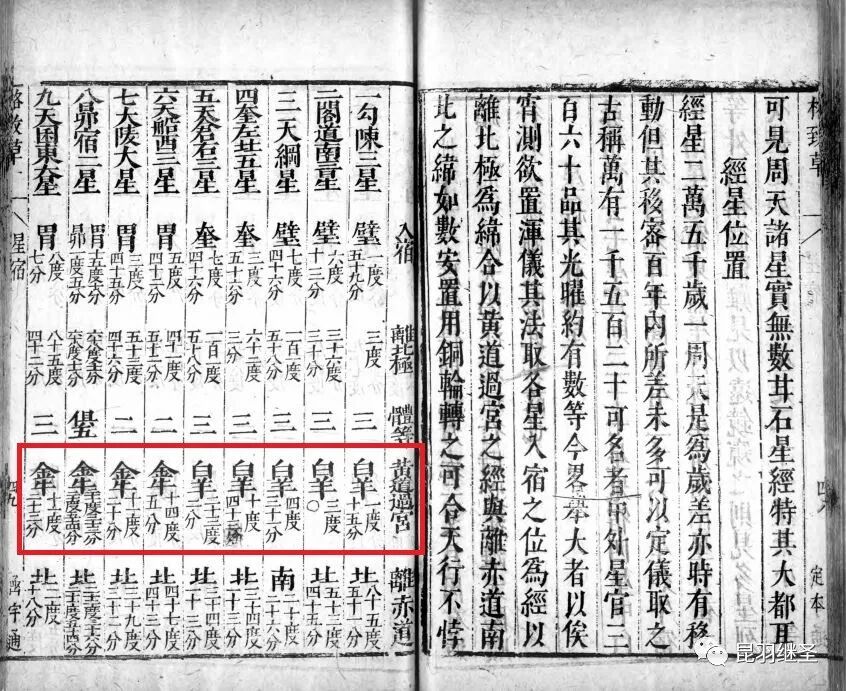 格致草
可見周天諸星實無數甘石星經特其大都耳
經星位置
經星二萬五千歲一周天是為歲差亦時有移
動但其移密百年內所差未多可以定儀取之
古稱萬有一千五百二十可名者中外星官三
百六十品其光曜約有數等今畧舉大者以俟
宵測欲置渾儀其法取各星入宿之位為經以
離北極為緯合以黃道過宮之經與離赤道南
北之緯如數安置用銅輪轉之可合天行不悖
四八 定本
入宿 離北極 體等 黃道過宮 離赤道
一勾陳三星 壁 一度五十九分 三度 三 白羊 一度十五分 北 八十五度五十一分
二閣道南三星 壁 六度十三分 三十六度三十分 三 白羊 三度〇 北 五十四度四十五分
三天綱星 壁 七度四十六分 一百度五十八分 三 白羊 四度三十分 南 二十度三十分
四奎左北五星 奎 三度五十六分 六十二度三分 三 白羊 十度四十三分 北 三十四度
五天倉右三星 奎 七度 一百度五十八分 三 白羊 二十三度二分 北 二十四度十三分
六天船西三星 胃 五度五十二分 四十一度五十二分 二 金牛 十四度五分 北 四十七度四十三分
七大陵大星 胃 三度四十五分 五十度四十六分 二 金牛 十一度二十分 北 三十九度三十二分
八昴宿二星 胃 昴 金牛 北
九天囷東大星 胃 八度七分 八十五度四十二分 三 金牛 十二度二十三分 北 二度十八分
格致草 星宿 四九 函宇通
昆羽继圣